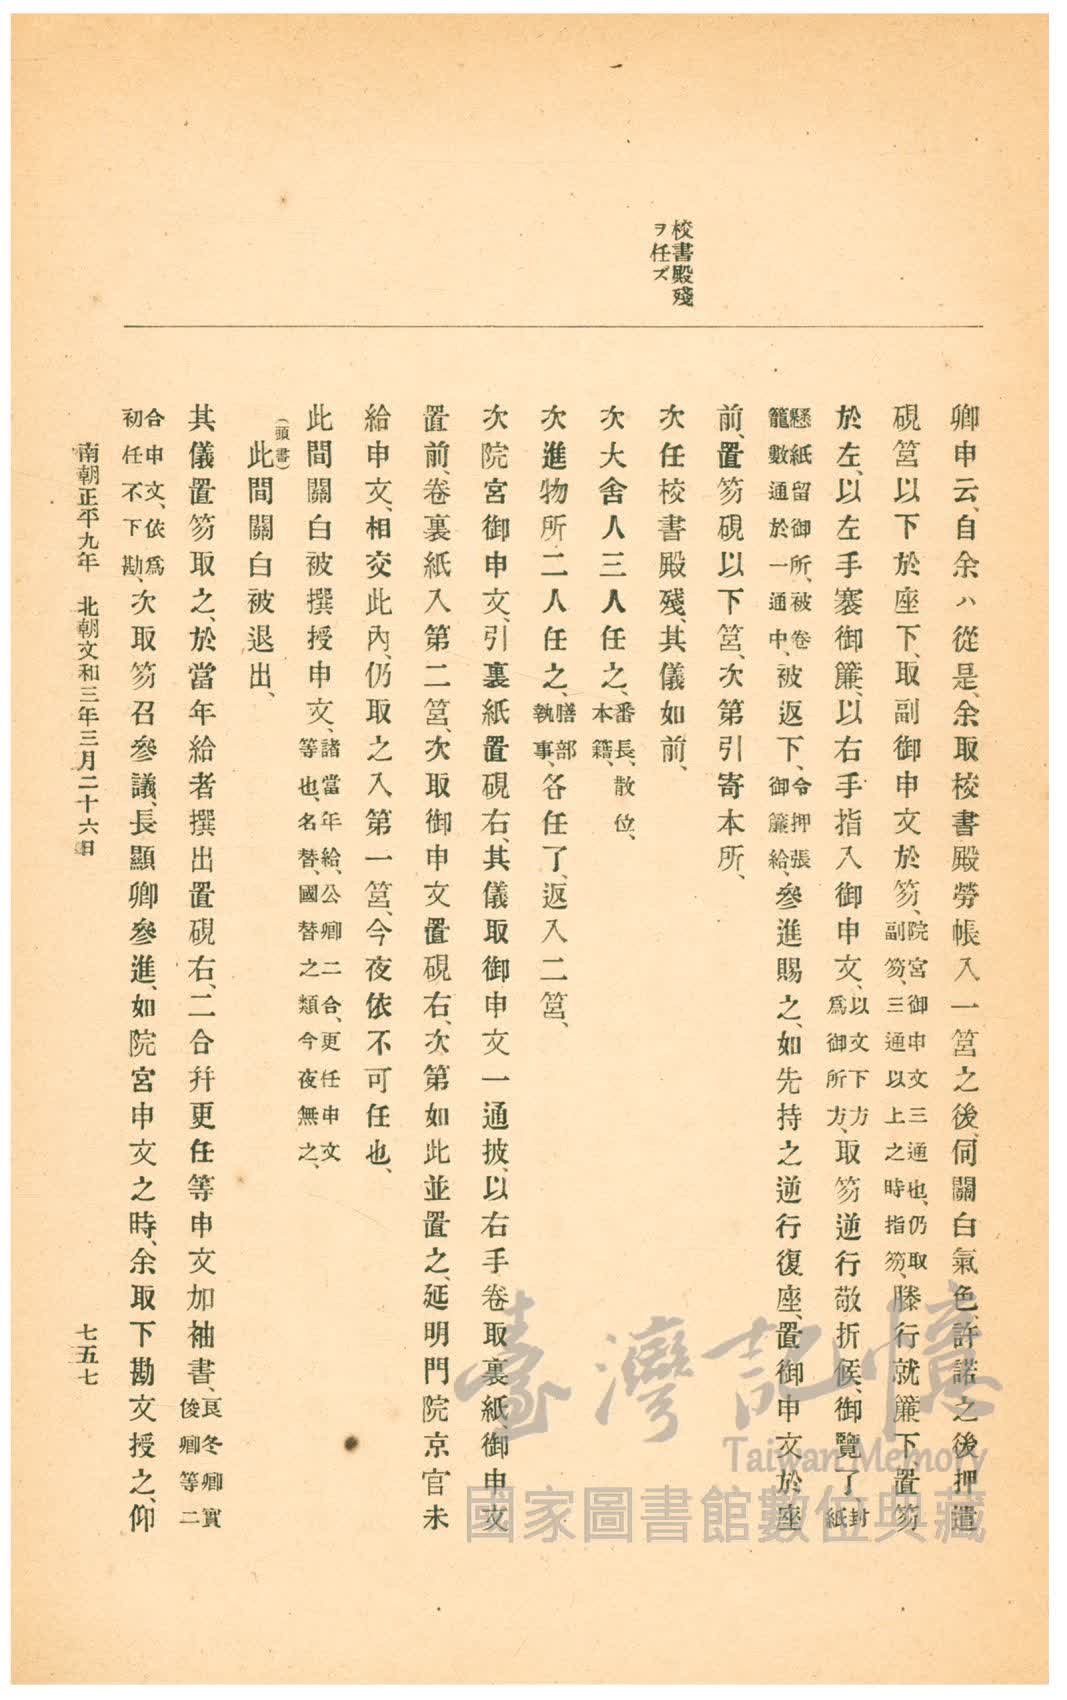 校書殿殘
ヲ任ズ
卿申云、自余ハ從是、余取校書殿勞帳入一筥之後、伺關白氣色、許諾之後押遣
硯筥以下於座下、取副御申文於笏、院宮御申文三通也、仍取副笏、三通以上之時指笏、膝行就簾下、置笏
於左、以左手褰御簾、以右手指入御申文、以文下方爲御所方、取笏逆行敬折候、御覽了封紙
懸紙留御所、被卷籠數通於一通中、被返下、令押張御簾給、參進賜之、如先持之逆行復座、置御申文於座
前、置笏硯以下筥、次第引寄本所、
次任校書殿殘、其儀如前、
次大舍人三人任之、番長、散位、本籍、
次進物所二人任之、膳部執事、各任了、返入二筥、
次院宮御申文、引裏紙置硯右、其儀取御申文一通披、以右手卷取裏紙、御申文
置前、卷裏紙入第二筥、次取御申文置硯右、次第如此並置之、延明門院京官未
給申文、相交此內、仍取之入第一筥、今夜依不可任也、
此間關白被撰授申文、諸當年給、公卿二合、更任申文等也、名替、國替之類今夜無之、
(頭書)
此間關白被退出、
其儀置笏取之、於當年給者撰出置硯右、二合幷更任等申文加袖書、良冬卿實俊卿等二
合申文、依爲初任不下勘、次取笏召參議、長顯卿參進、如院宮申文之時、余取下勘文授之、仰
南朝正平九年 北朝文和三年三月二十六日
七五七
臺灣記憶
Taiwan Memory
國家圖書館數位典藏